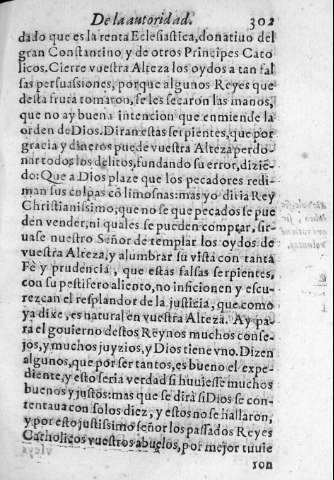 De la autoridad. 302
dado que es la renta Eclesiastica, donatiuo del
gran Constantino y de otros Principes Cato
licos. Cierre vuestra Alteza los oydos a tan fal
sas persuassiones, porque algunos Reyes que
desta fruta tomaron, se les secaron las manos,
que no ay buena intencion que enmiende la
orden de Dios. Diran estas serpientes, que por
gracia y dineros puede vuestra Alteza perdo-
nar todos los delitos, fundando su error, dizié-
do: Que a Dios plaze que los pecadores redi-
man sus culpas cõ limosnas: mas yo diria Rey
Christianissimo, que no se que pecados se pue
den vender, ni quales se pueden comprar, sir-
uase nuestro Señor de templar los oydos de
vuestra Alteza, y alumbrar su vista con tanta
Fè y prudencia, que estas falsas serpientes,
con su pestifero aliento, no inficionen y escu-
rezcan el resplandor de la justicia, que como
ya dixe, es natural en vuestra Alteza. Ay pa-
ra el gouierno destos Reynos muchos conse-
jos, y muchos juyzios, y Dios tiene vno. Dizen
algunos, que por ser tantos, es bueno el expe-
diente, y esto seria verdad si huuiesse muchos
buenos y justos: mas que se dirà si Dios se con-
tentaua con solos diez, y estos no se hallaron,
y por esto justissimo señor los passados Reyes
Catholicos vuestros abuelos, por mejor tuuie
ron